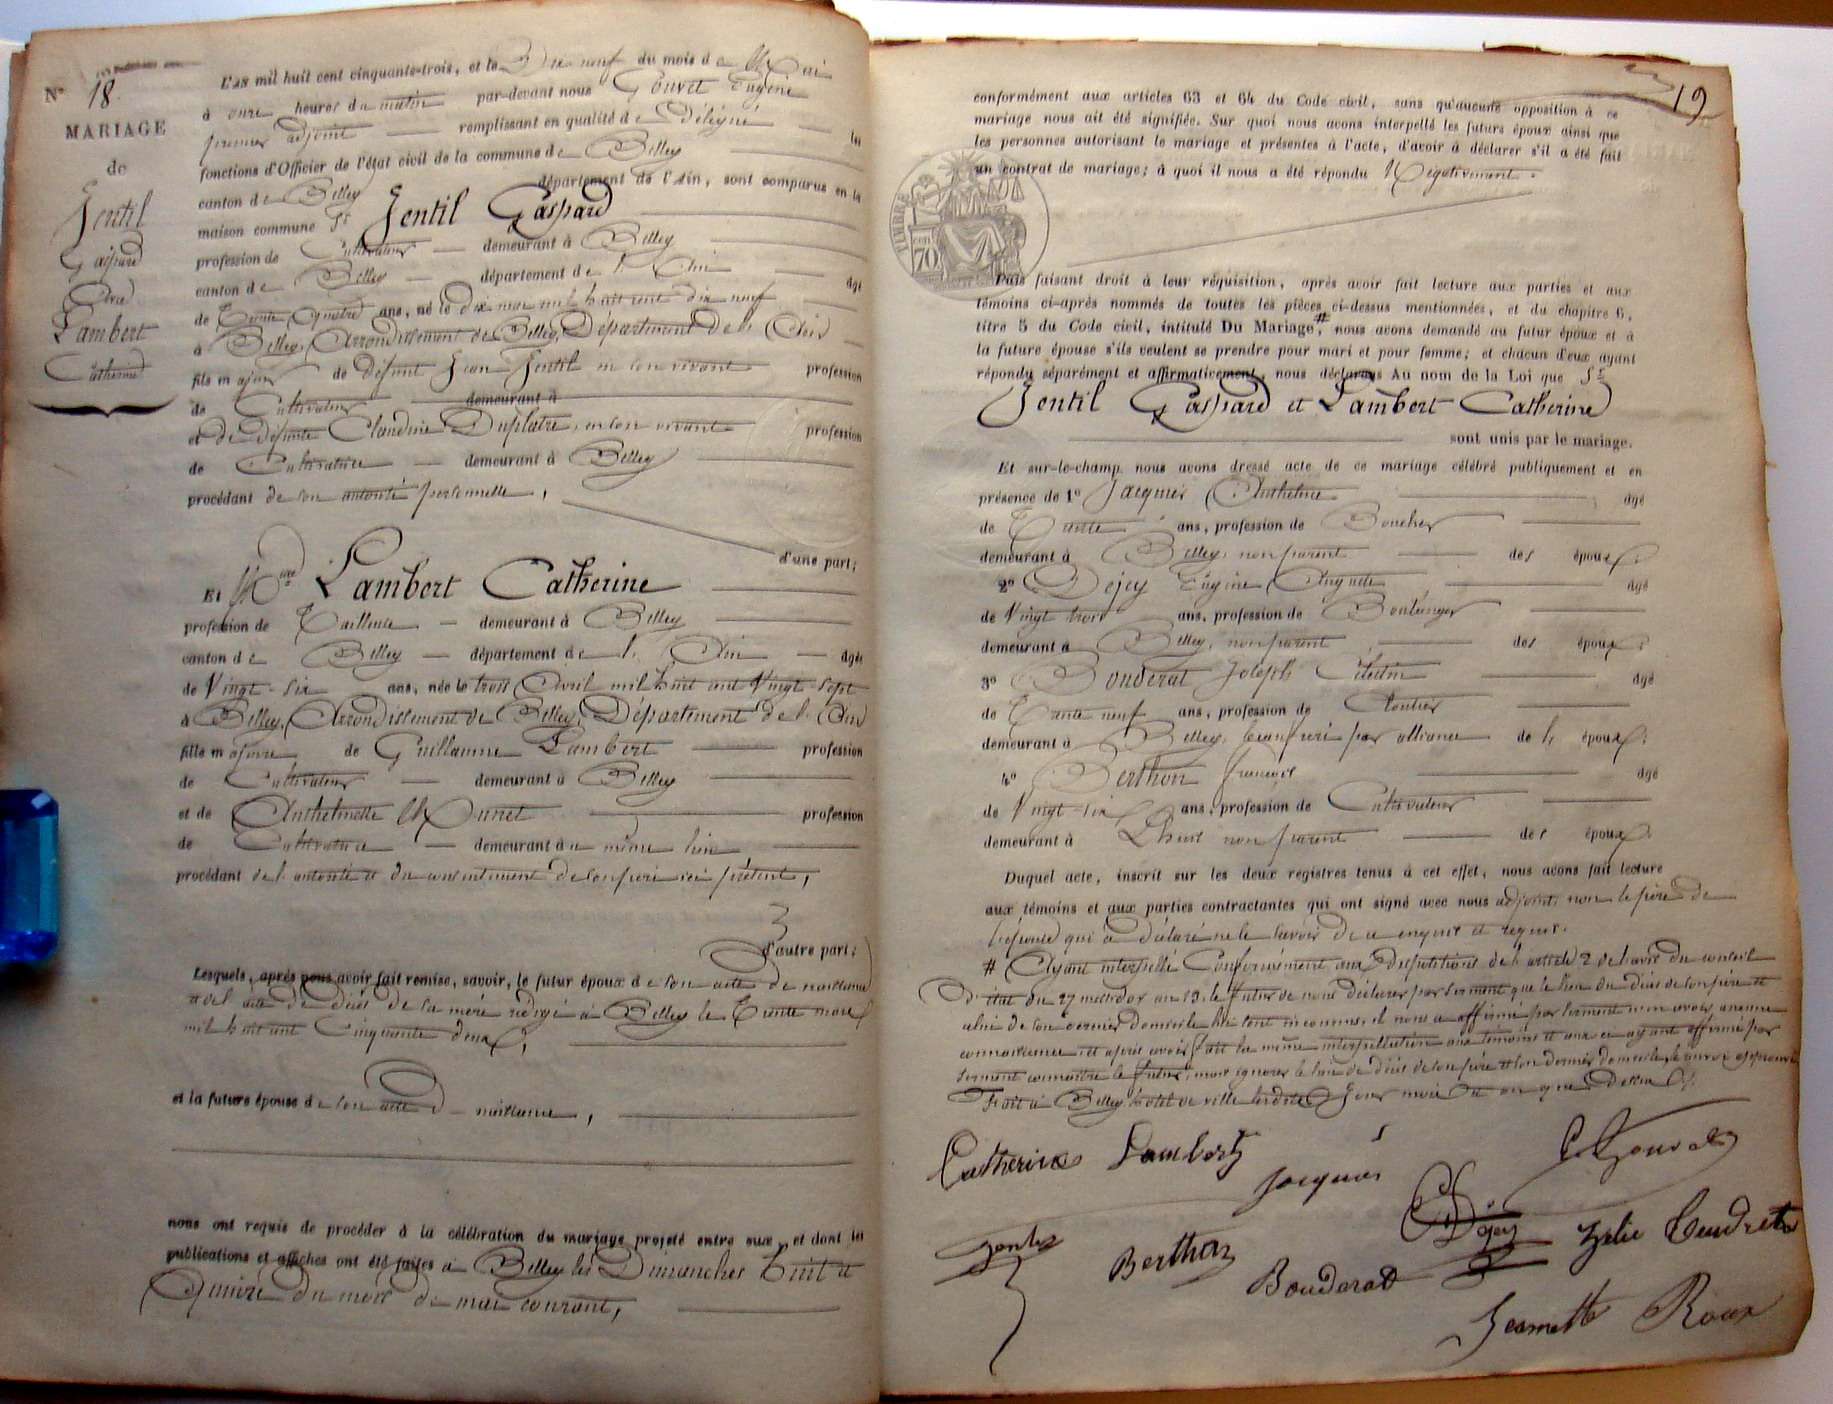 N° 18
MARIAGE
de
Gentil
Gaspard
Et
Lambert
Catherine
L'an mil huit cent cinquante-trois, et le Dix neuf du mois de Mai
à onze heures du matin par-devant nous Gouvet Eugène
premier adjoint remplissant en qualité de Délégué les
fonctions d'Officier de l'état civil de la commune de Belley
canton de Belley département de l'Ain, sont comparus en la
maison commune Sr Gentil Gaspard
profession de Cultivateur demeurant à Belley
canton de Belley département de l'Ain âgé
de Trente quatre ans, né le dix mai mil huit cent dix neuf
à Belley, Arrondissement de Belley, Département de l'Ain
fils majeur de défunt Jean Gentil en son vivant profession
de Cultivateur demeurant à
et de défunte Claudine Duplatre, en son vivant profession
de Cultivatrice demeurant à Belley
procédant de son autorité personnelle,
d'une part;
Et Lambert Catherine
profession de Tailleuse demeurant à Belley
canton de Belley département de l'Ain âgée
de Vingt-six ans, née le trois Avril mil huit cent Vingt sept
à Belley, Arrondissement de Belley, Département de l'Ain
fille majeure de Guillaume Lambert profession
de Cultivateur demeurant à Belley
et de Anthelmette Munet profession
de Cultivatrice demeurant au même lieu
procédant de l'autorité et du consentement de son père ici présent,
d'autre part;
Lesquels, après nous avoir fait remise, savoir, le futur époux de son acte de naissance
et de l'acte de décès de sa mère rédigé à Belley le Trente mars
mil huit cent Cinquante deux;
et la future épouse de son acte de naissance,
nous ont requis de procéder à la célébration du mariage projeté entre eux, et dont les
publications et affiches ont été faites à Belley les Dimanches huit et
Quinze du mois de mai courant,
19
conformément aux articles 63 et 64 du Code civil, sans qu'aucune opposition à ce
mariage nous ait été signifiée. Sur quoi nous avons interpellé les futurs époux ainsi que
les personnes autorisant le mariage et présentes à l'acte, d'avoir à déclarer s'il a été fait
un contrat de mariage; à quoi il nous a été répondu Négativement.
TIMBRE
70
Puis faisant droit à leur réquisition, après avoir fait lecture aux parties et aux
témoins ci-après nommés de toutes les pièces ci-dessus mentionnées, et du chapitre 6,
titre 5 du Code civil, intitulé Du Mariage, # nous avons demandé au futur époux et à
la future épouse s'ils veulent se prendre pour mari et pour femme; et chacun d'eux ayant
répondu séparément et affirmativement, nous déclarons Au nom de la Loi que Sr
Gentil Gaspard et Lambert Catherine
sont unis par le mariage.
Et sur-le-champ nous avons dressé acte de ce mariage célébré publiquement et en
présence de 1° Jacquier Anthelme âgé
de Trente ans, profession de Boucher
demeurant à Belley, non parent des époux;
2° Dejey Eugène Auguste âgé
de Vingt trois ans, profession de Boulanger
demeurant à Belley, non parent des époux;
3° Bouderat Joseph Célestin âgé
de Trente neuf ans, profession de Cloutier
demeurant à Belley, beau frère par alliance de l' époux;
4° Berthon françois âgé
de Vingt-six ans, profession de Cultivateur
demeurant à non parent des époux.
Duquel acte, inscrit sur les deux registres tenus à cet effet, nous avons fait lecture
aux témoins et aux parties contractantes qui ont signé avec nous adjoint, non le père de
l'épouse qui a déclaré ne le savoir de ce enquis et requis.
# Ayant interpellé Conformément aux dispositions de l'article 2 de l'avis du conseil
d'état du 27 messidor an 13, le futur de nous déclarer par serment que le lieu du décès de son père et
celui de son dernier domicile lui sont inconnus, il nous a affirmé par serment n'en avoir aucune
connaissance et après avoir fait la même interpellation aux témoins et eux ce ayant affirmé par
serment connaitre le futur, mais ignorer le lieu du décès de son père et son dernier domicile, le renvoi approuvé
Fait à Belley hôtel de ville lesdits Jour mois et an que dessus
Catherine Lambert
Jacquier
Gentil
Berthon
Bouderat
Dejey
Jeannette Roux